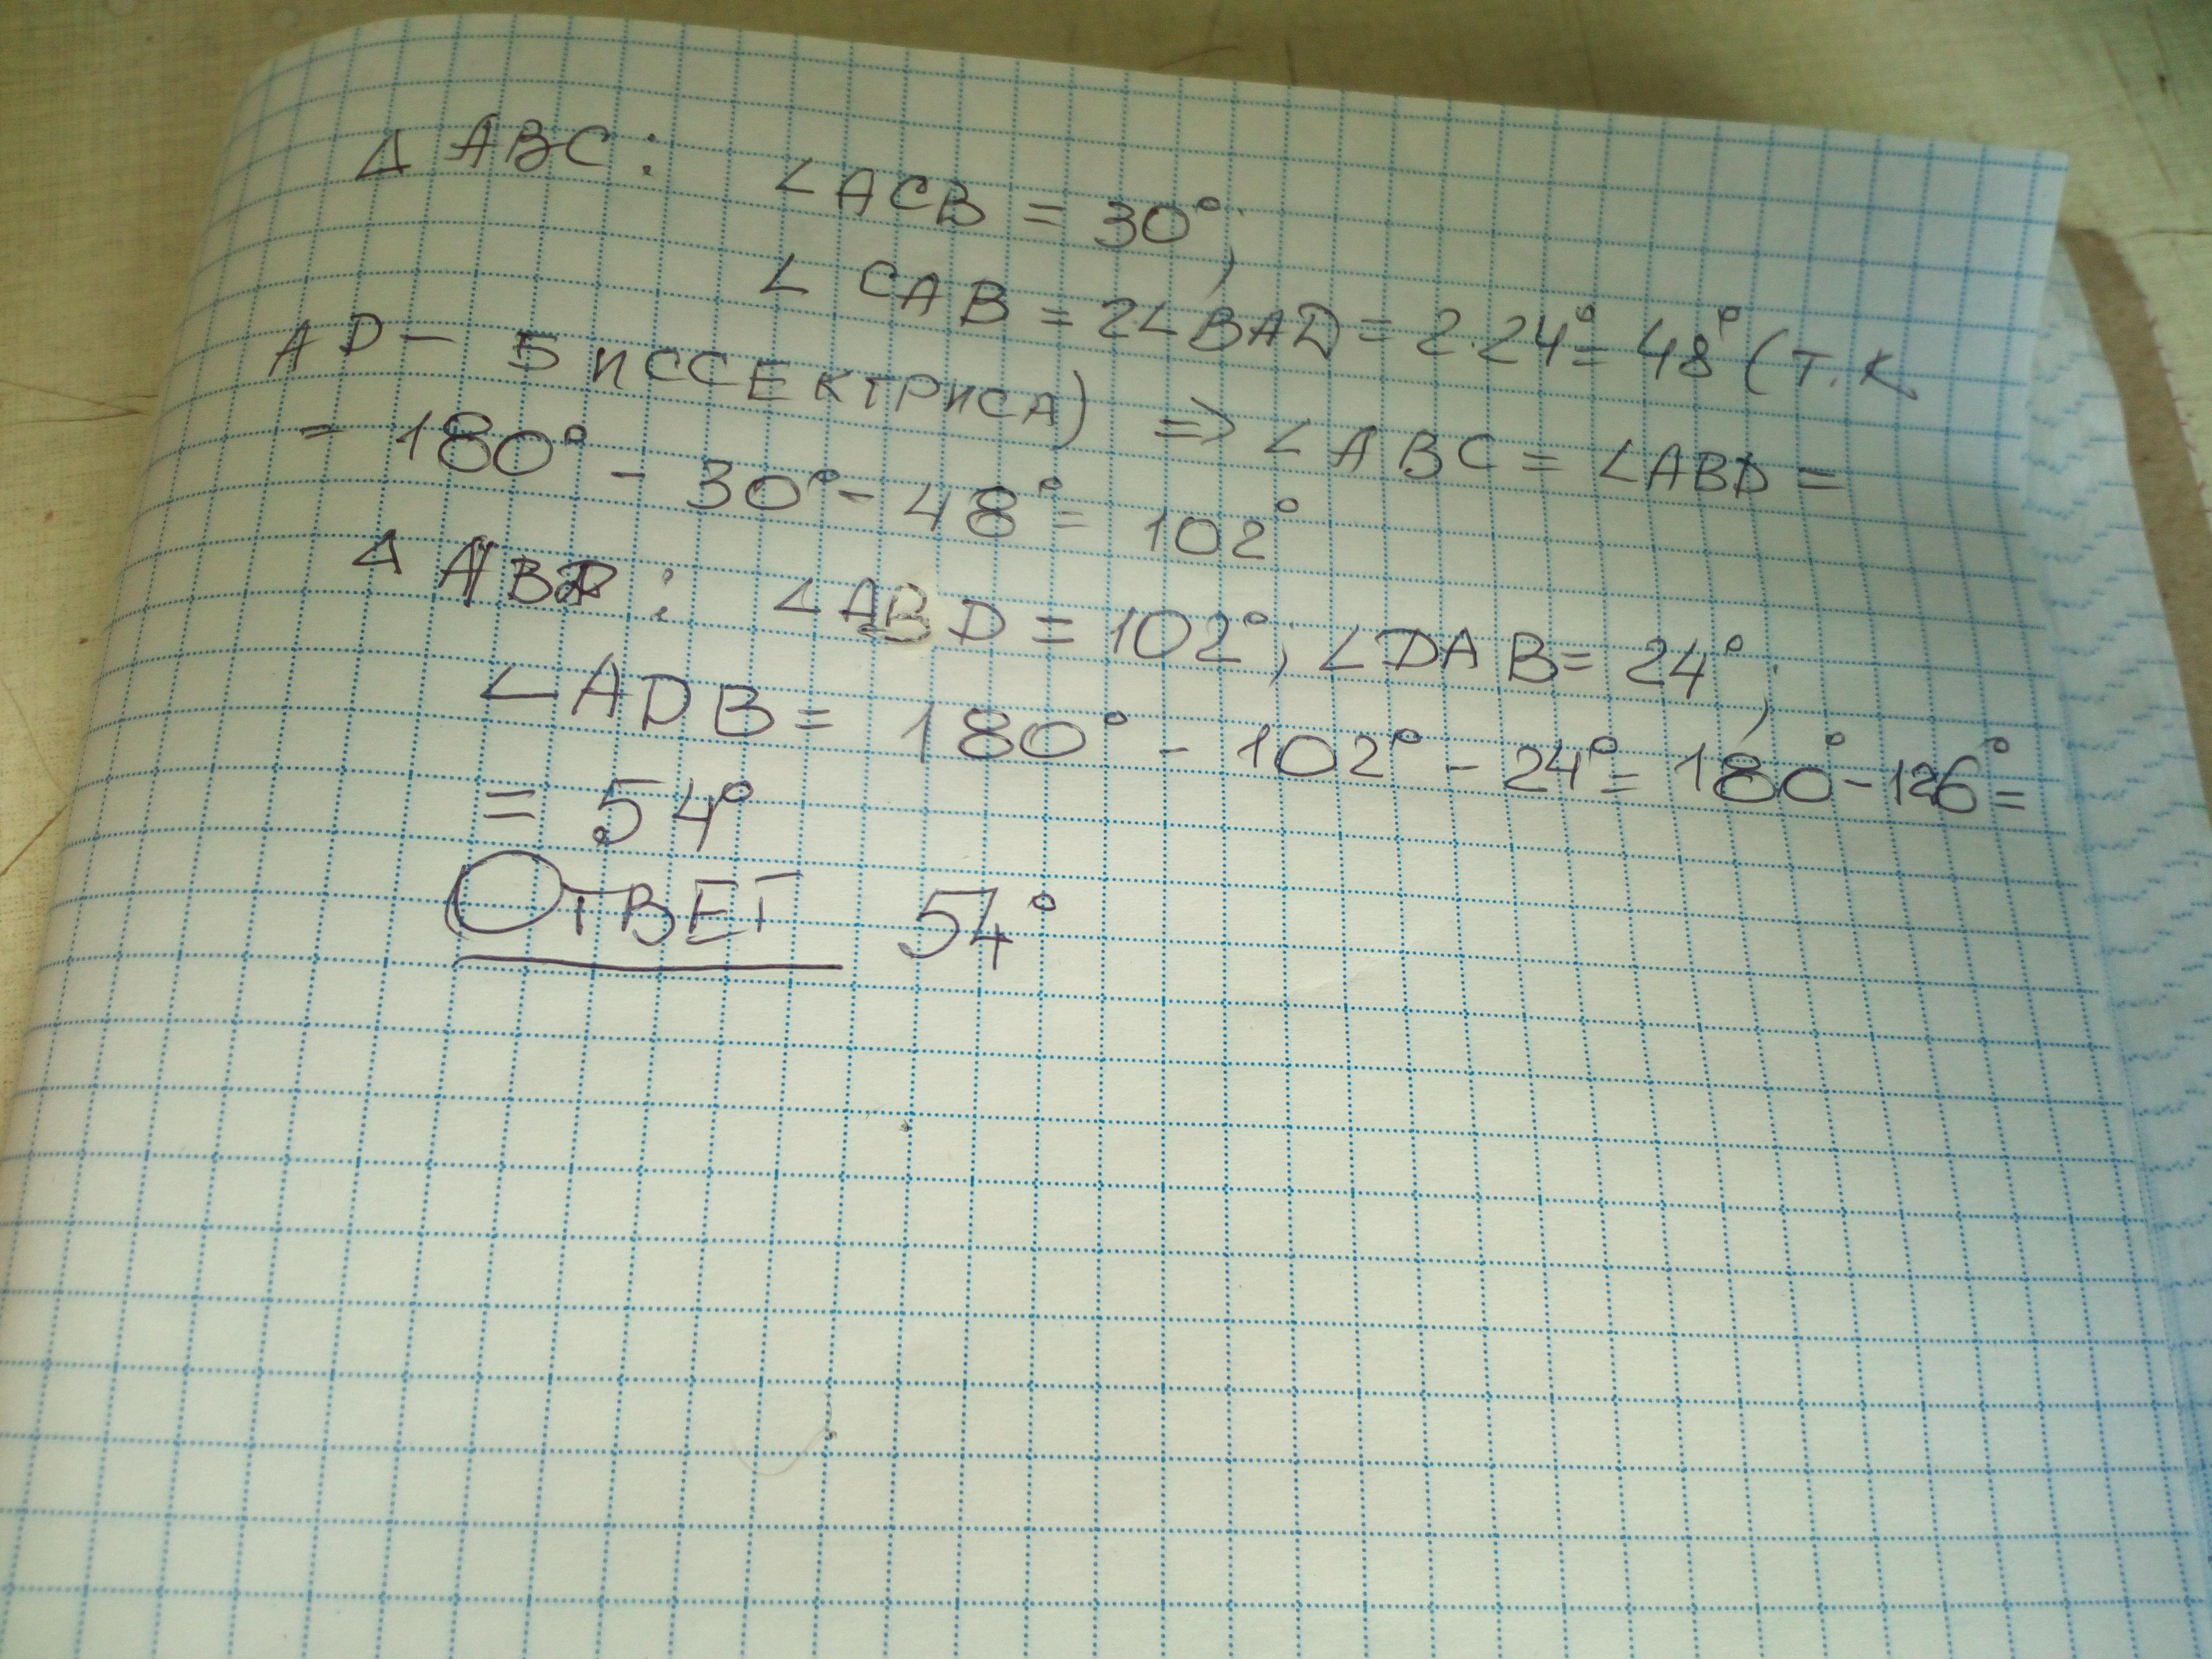 Δ ABC: ∠ACB = 30°;
∠ CAB = 2∠BAD = 2·24° = 48° (т.к
AD - БИССЕКТРИСА) => ∠ABC = ∠ABD =
= 180° - 30° - 48° = 102°
Δ ABD: ∠ABD = 102°; ∠DAB = 24°;
∠ADB = 180° - 102° - 24° = 180° - 126° =
= 54°
ОТВЕТ 54°